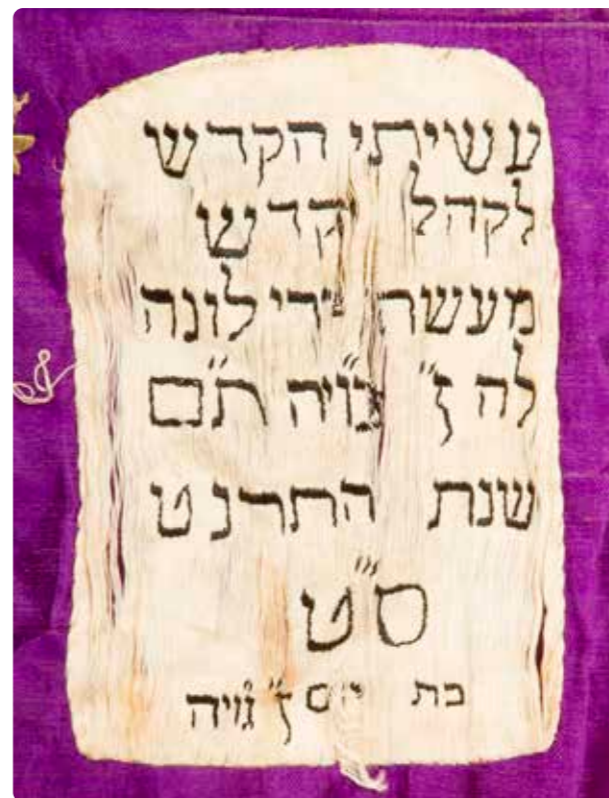 עשיתי הקדש
לקהל קדש
מעשה ידי לונה
לה ז״ גויה ת״ם
שנת התרנט
ס״ט
בת ז״ גויה